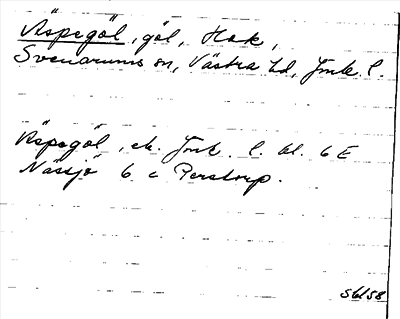 Äspegöl, göl, Hok,
Svenarums sn, Västra hd, Jmk. l.
Äspegöl, ek. Jmk. l. bl. 6 E
Nässjö 6 c Perstorp.
Sbl 58